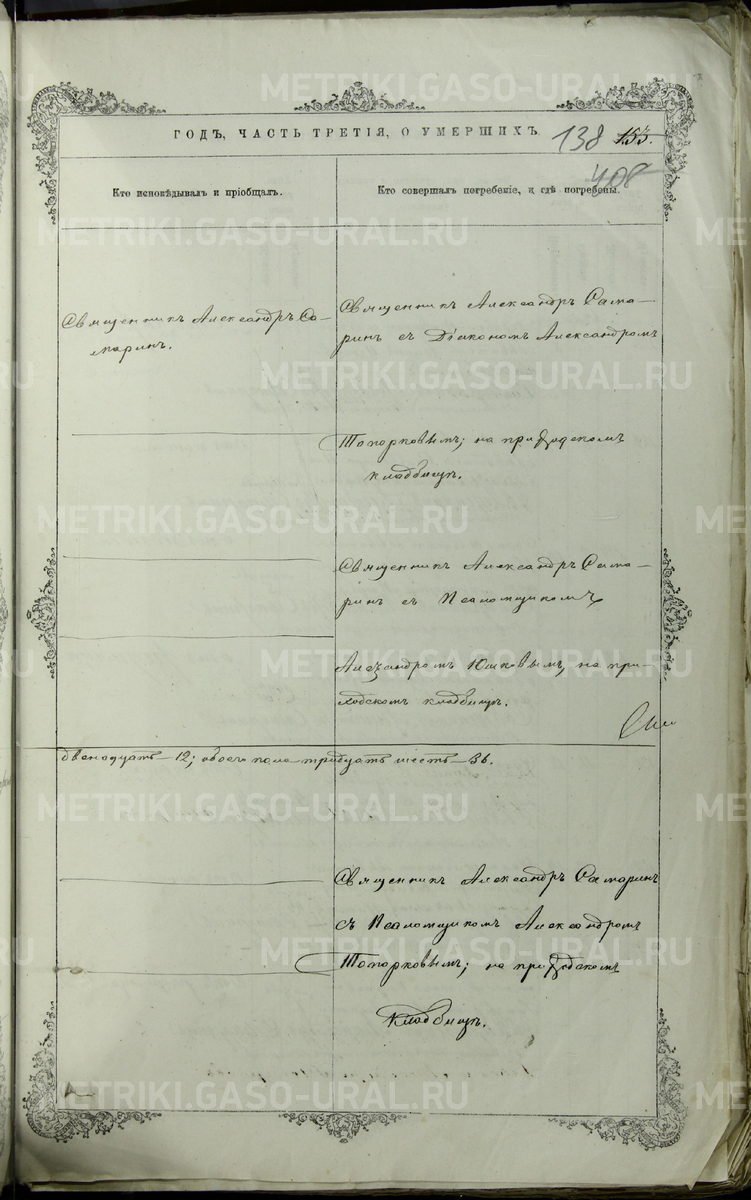 ГОДЪ, ЧАСТЬ ТРЕТІЯ, О УМЕРШИХЪ.
138 153.
408
Кто исповѣдывалъ и пріобщалъ.
Кто совершалъ погребеніе, и гдѣ погребены.
Священникъ Александръ Са-
маринъ.
Священникъ Александръ Сама-
ринъ съ Діакономъ Александромъ
Топорковымъ; на приходскомъ
кладбищѣ.
Священникъ Александръ Сама-
ринъ съ Псаломщикомъ
Александромъ Юшковымъ, на при-
ходскомъ кладбищѣ.
двенадцать–12; обоего пола тридцать шесть–36.
Священникъ Александръ Самаринъ
съ Псаломщикомъ Александромъ
Топорковымъ; на приходскомъ
кладбищѣ.
METRIKI.GASO-URAL.RU